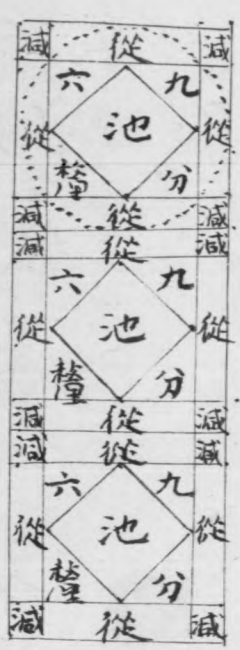 減 從 減
六 九
從 池 從
釐 分
減 從 減
減 從 減
六 九
從 池 從
釐 分
減 從 減
減 從 減
六 九
從 池 從
釐 分
減 從 減